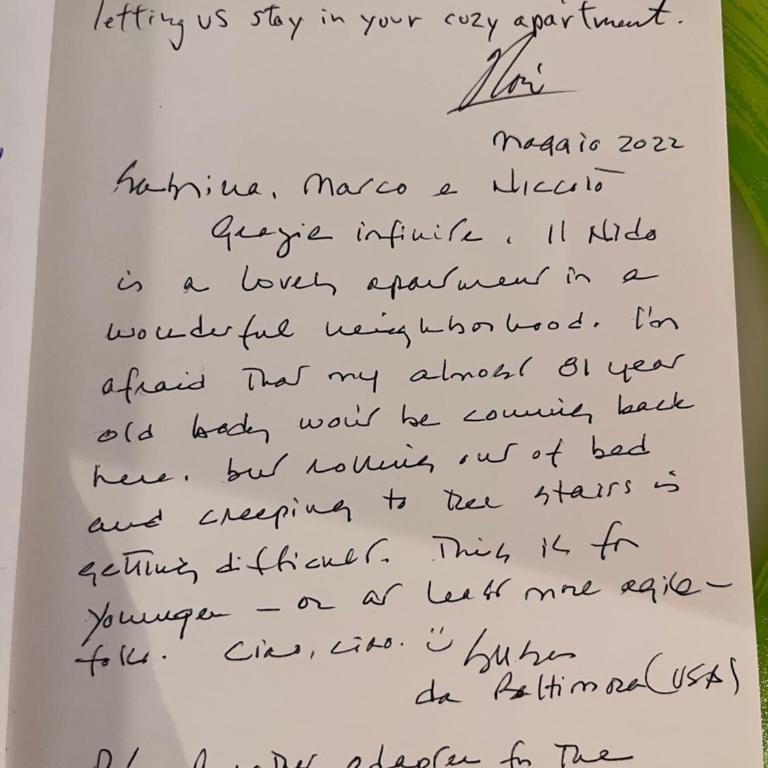 letting us stay in your cozy apartment.
maggio 2022
Sabrina, Marco e Niccolò
Grazie infinite. Il Nido
is a lovely apartment in a
wonderful neighborhood. I'm
afraid that my almost 81 year
old body won't be coming back
here, but rolling out of bed
and creeping to the stairs is
getting difficult. This is for
younger – or at least more agile –
folks. Ciao, ciao. :)
da Baltimora (USA)
adapter for the